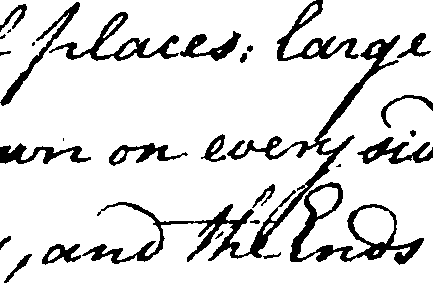 places; large
on every
, and the Ends